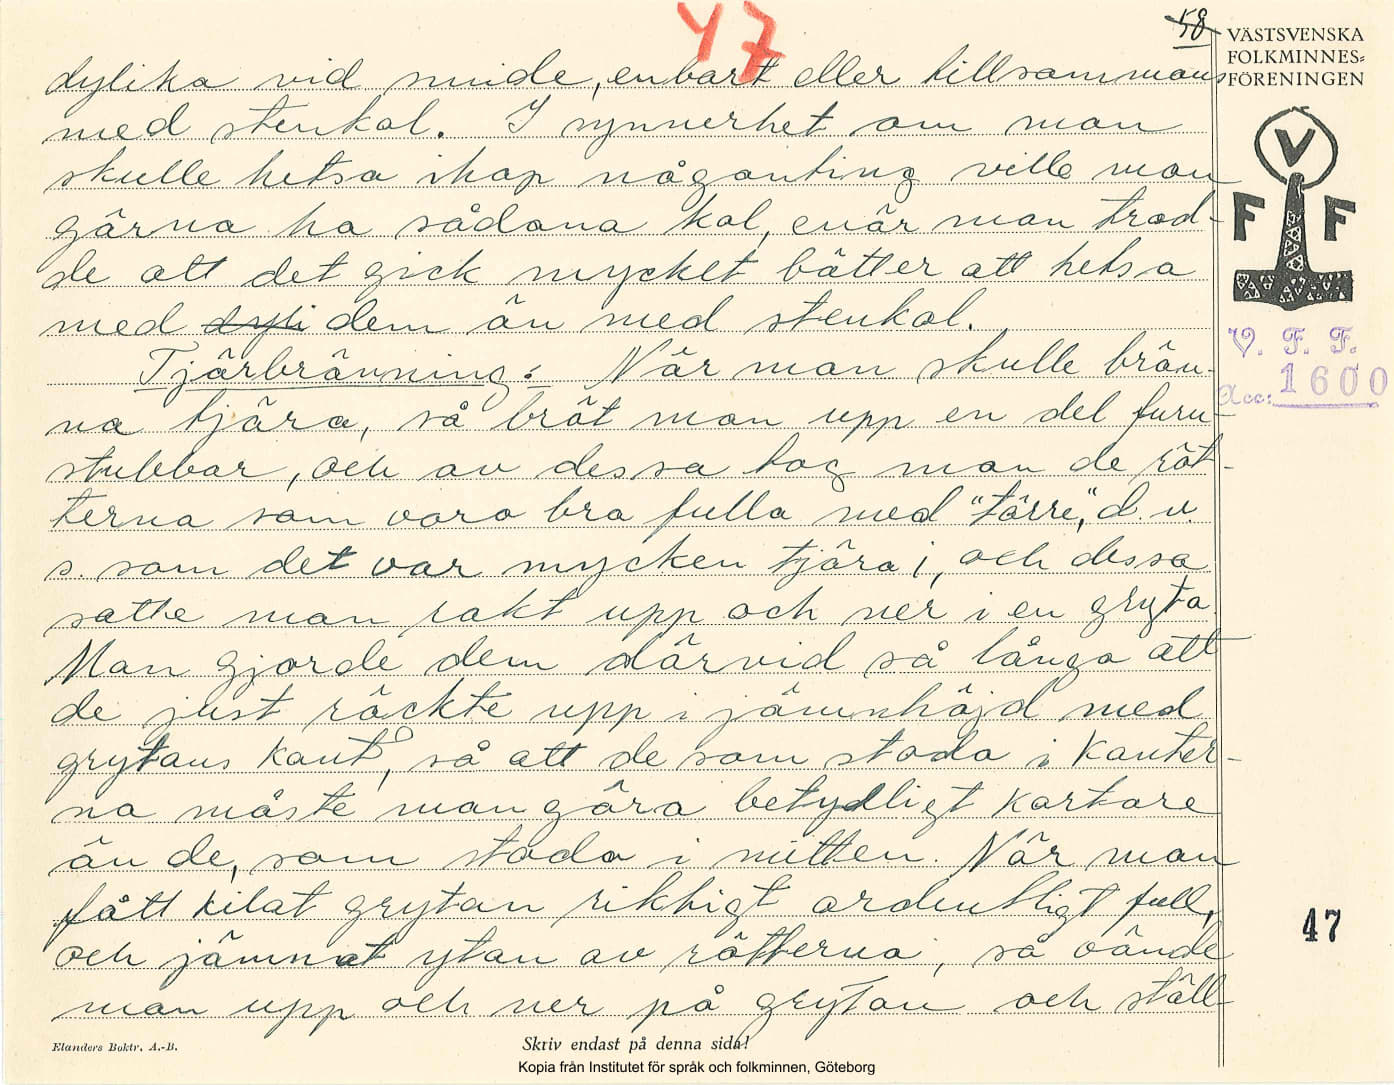 47
58
VÄSTSVENSKA
FOLKMINNES-
FÖRENINGEN
dylika vid smide, enbart eller tillsammans
med stenkol. I synnerhet om man
skulle hetsa ihop någonting ville man
gärna ha sådana kol, enär man trod-
de att det gick mycket bätter att hetsa
med dyli dem än med stenkol.
Tjärbränning: När man skulle brän-
na tjära, så bröt man upp en del furu-
stubbar, och av dessa tog man de röt-
terna som voro bra fulla med "törre", d. v.
s. som det var mycken tjära i, och dessa
satte man rakt upp och ner i en gryta.
Man gjorde dem därvid så långa att
de just räckte upp i jämnhöjd med
grytans kant, så att de som stodo i kanter-
na måste man göra betydligt kortare
än de, som stodo i mitten. När man
fått kilat grytan riktigt ordentligt full,
och jämnat ytan av rötterna, så vände
man upp och ner på grytan och ställ-
V F F
V. F. F.
Acc: 1600
47
Elanders Boktr. A.-B.
Skriv endast på denna sida!
Kopia från Institutet för språk och folkminnen, Göteborg